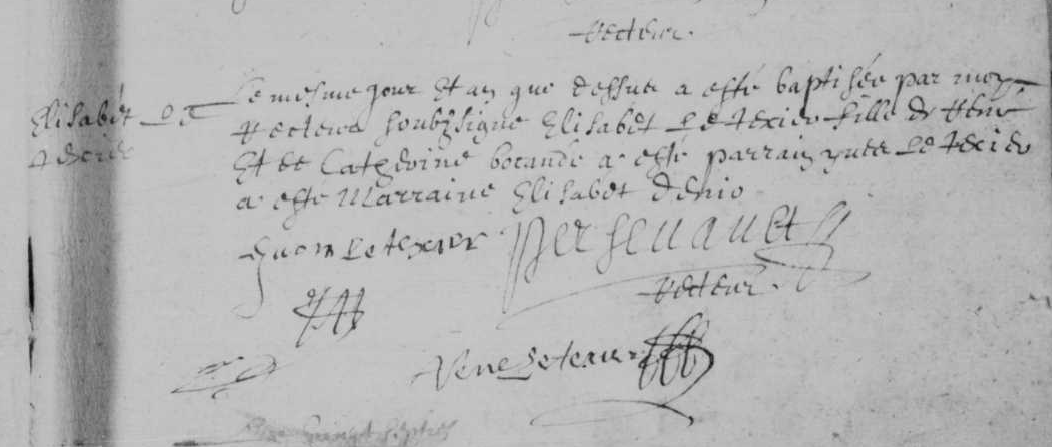 Recteur.
Elisabet Le
Texier
Le mesme jour Et an que dessus a esté baptisée par moy
Recteur soubzsigné Elisabet Le Texier fille de René
Et de Catherine a esté parrain yues Le Texier
a esté Marraine Elisabet
Le texier
Recteur.
Rene Le texier